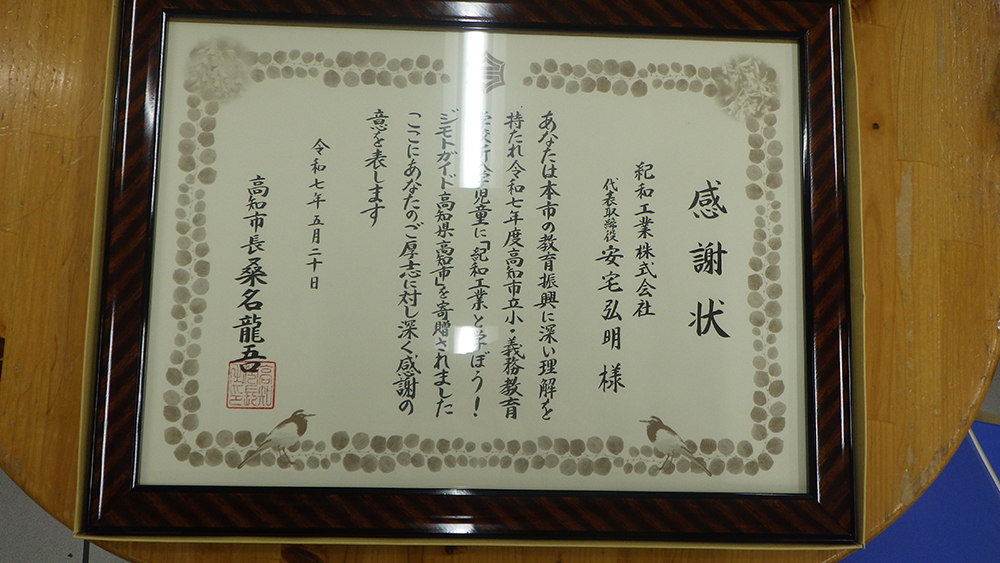 感謝状
紀和工業株式会社
代表取締役 安宅弘明 様
あなたは本市の教育振興に深い理解を
持たれ令和七年度高知市立小・義務教育
学校新入学児童に「紀和工業と学ぼう!
ジモトガイド高知県高知市」を寄贈されました
ここにあなたのご厚志に対し深く感謝の
意を表します
令和七年五月二十日
高知市長 桑名龍吾